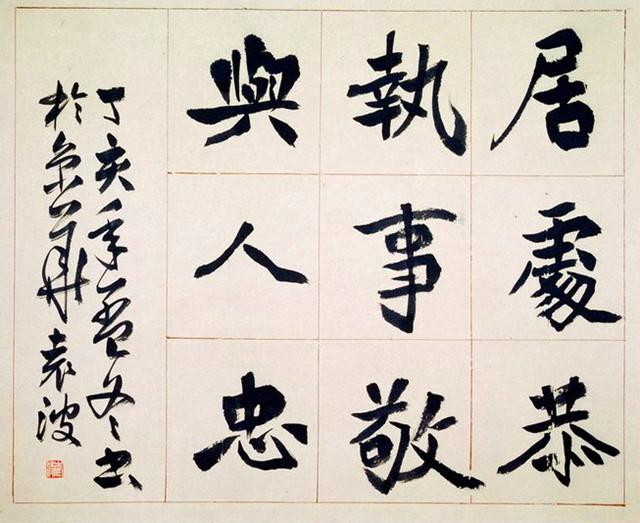 居處恭
執事敬
與人忠
丁亥年暮冬書
於京華袁波